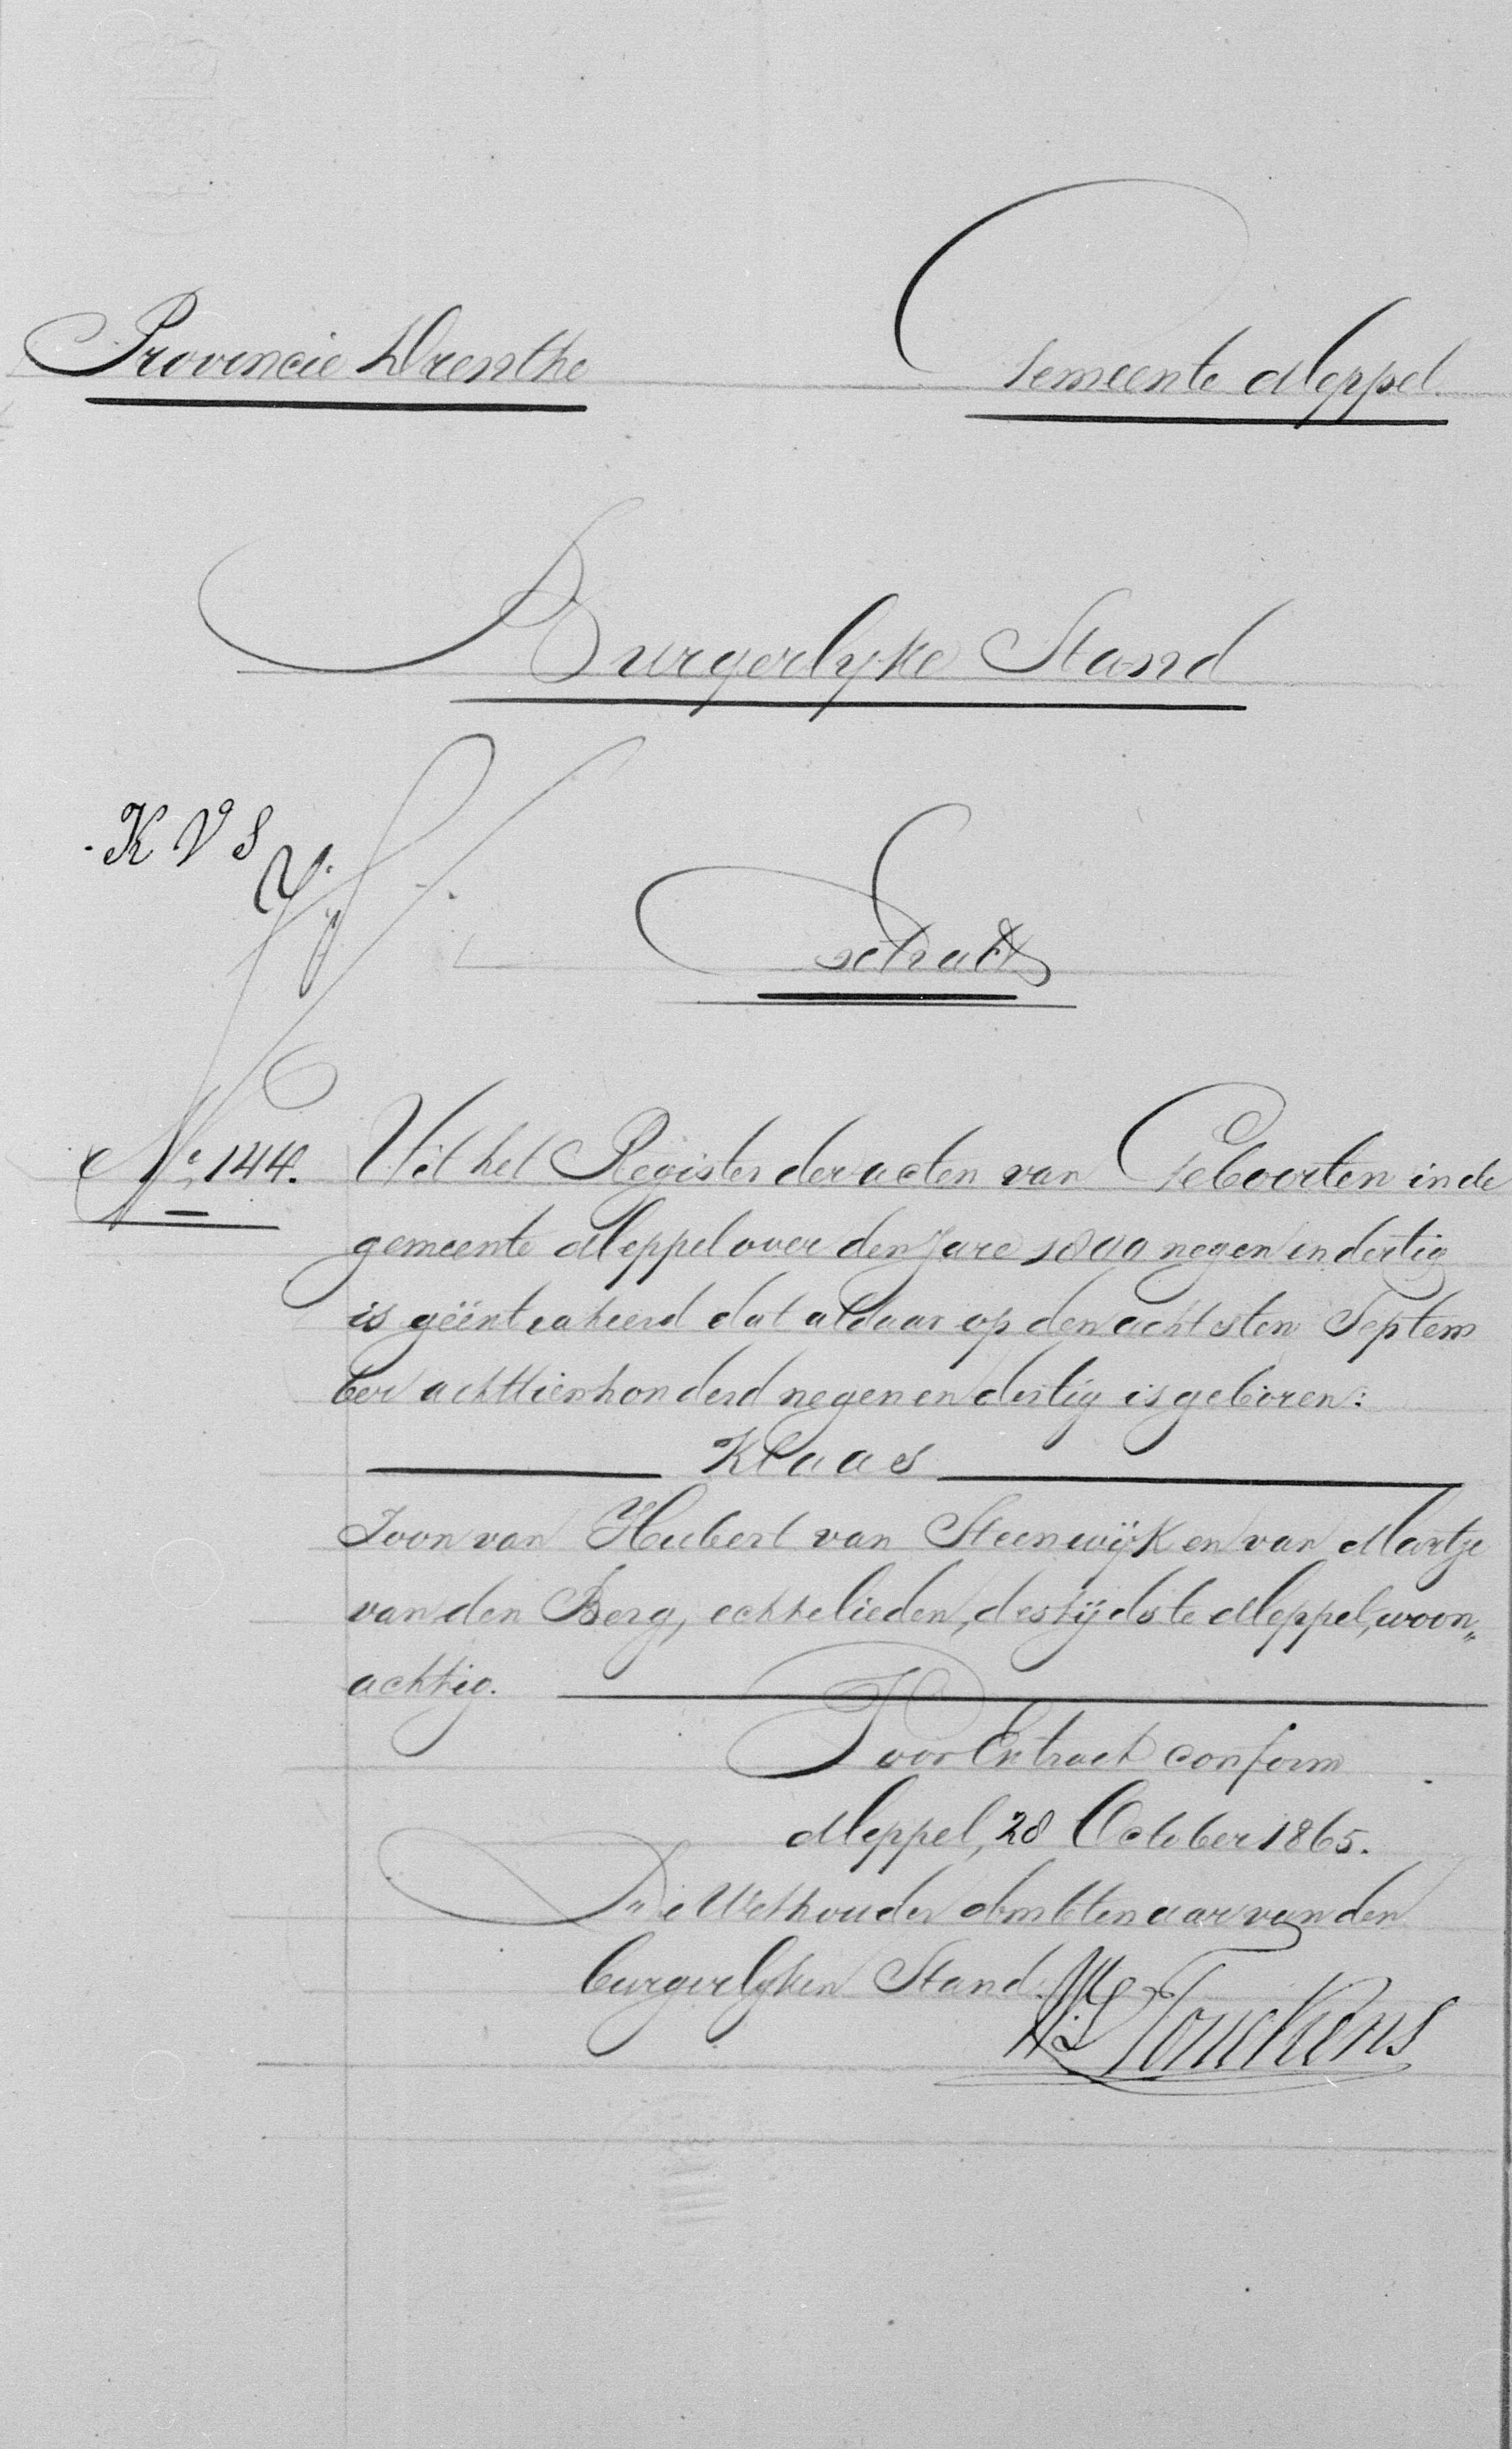 Provincie Drenthe
Gemeente Meppel
Burgerlyke Stand
K V S
Extract
No 144. Uit het Register der acten van Geboorten in de
gemeente Meppel over den Jare 1800 negen en dertig
is geëxtraheerd dat aldaar op den achtsten Septem
ber achttienhonderd negenendertig is geboren:
Klaas
Zoon van Hubert van Steenwijk en van Martje
van den Berg, echtelieden, destijds te Meppel, woon„
achtig.
Voor Extract conform
Meppel, 28 October 1865.
De Wethouder Ambtenaar van den
burgerlyken Stand.
Tonckens